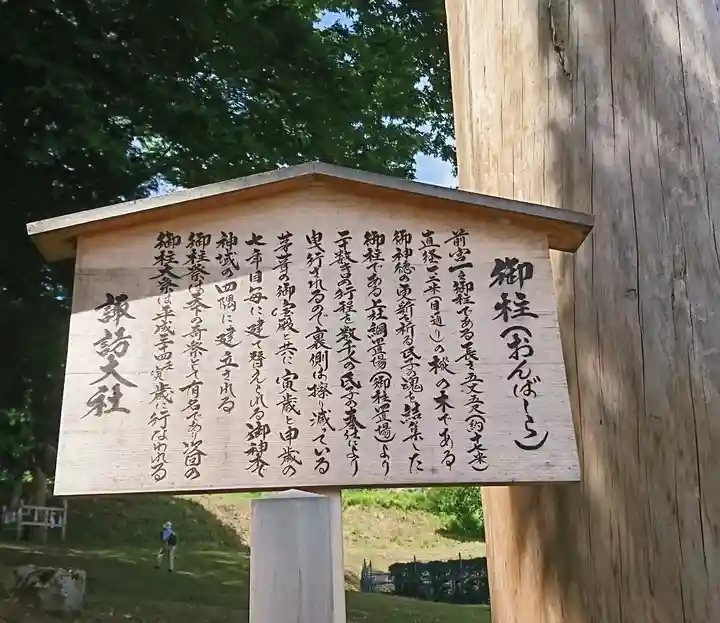 御柱(おんばしら)
前宮一之御柱である 長さ五丈五尺(約十七米)
直径一・二米(目通り)の樅の木である
御神徳の更新を祈る氏子の魂を結集した
御柱である 上社綱置場(御柱置場)より
二十数キロの行程を数千人の氏子の奉仕により
曳行されるので裏側は擦り減っている
茅葺の御宝殿と共に寅歳と申歳の
七年目毎に建て替えられる御神木で
神域の四隅に建立される
御柱祭は天下の奇祭として有名であり次回の
御柱大祭は平成三四年寅歳に行なわれる
諏訪大社